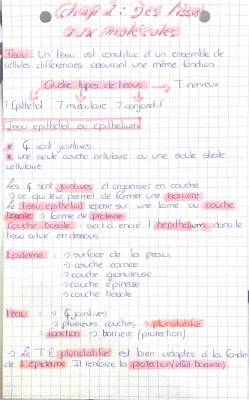 Chap 2 : Des tissus
aux molécules
Tissu : Un tissu est constitué d'un ensemble de
cellules différenciées assurant une même fonction
Quatre types de tissus → T. nerveux
T. Epithélial T. musculaire T. conjonctif
Tissu épithélial ou épithélium
* ç sont jointives
* une seule couche cellulaire ou une seule strate
cellulaire
Les ç sont jointives et organiser en couche
→ ce qui leur permet de former une barrière
Le tissu épithélial repose sur une lame ou couche
basale → forme de protéine
Couche basale : sert à ancrer l'hépithélium dans le
tissu situé en dessous
Epiderme : → surface de la peau
→ couche cornée
→ couche granuleuse
→ couche épineuse
→ couche basale
Peau : → ç jointives
→ plusieurs couches → pluristratifié
→ fonction → barrière (protection)
→ Le T.E pluristratifié est bien adaptée à la fonction
de l'épiderme. Il renforce la protection (effet barrière)